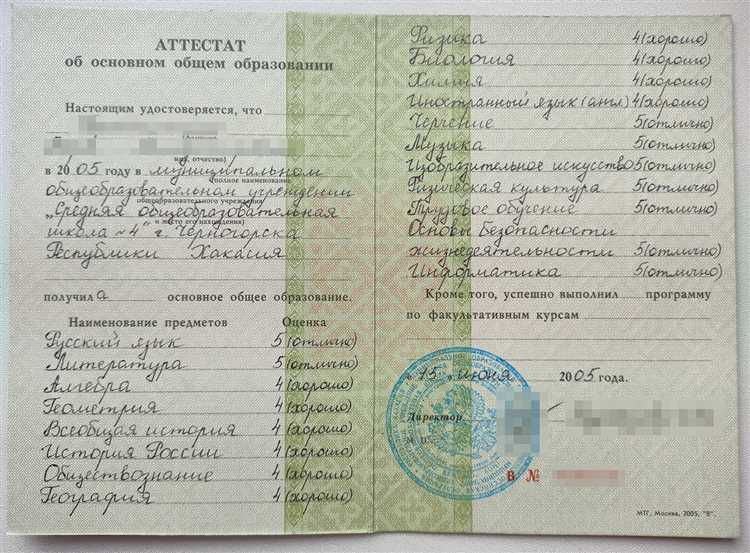 АТТЕСТАТ
об основном общем образовании
Настоящим удостоверяется, что
(фамилия,
имя, отчество)
в 2005 году в муниципальном
(полное наименование
общеобразовательном учреждении
общеобразовательного учреждения
„Средняя общеобразовательная
и место его нахождения)
школа №4" г. Черногорска
Республики Хакасия
получила основное общее образование.
Наименование предметов Оценка
Русский язык 5 (отлично)
Литература 5 (отлично)
Алгебра 4 (хорошо)
Геометрия 4 (хорошо)
Всеобщая история 4 (хорошо)
История России 4 (хорошо)
Обществознание 4 (хорошо)
География 4 (хорошо)
Физика 4 (хорошо)
Биология 4 (хорошо)
Химия 4 (хорошо)
Иностранный язык (англ) 4 (хорошо)
Черчение 5 (отлично)
Музыка 5 (отлично)
Изобразительное искусство 5 (отлично)
Физическая культура 5 (отлично)
Трудовое обучение 5 (отлично)
Основы безопасности
жизнедеятельности 5 (отлично)
Информатика 5 (отлично)
Кроме того, успешно выполнил программу
по факультативным курсам
в 15 в июня 2005 года.
Директор
М. П.
В №
МТГ, Москва, 2005, "В".